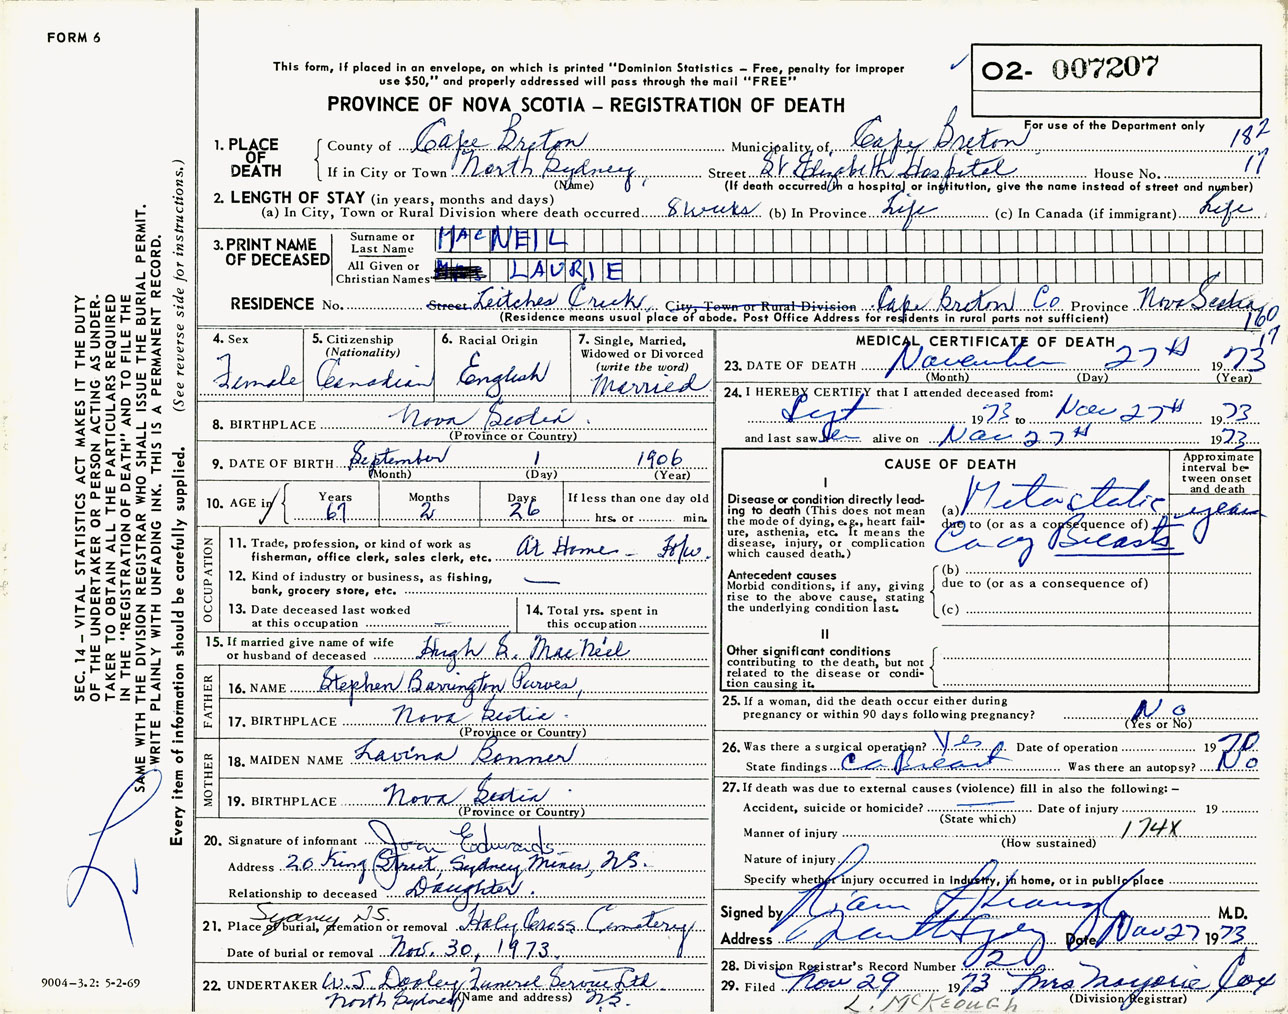 FORM 6
This form, if placed in an envelope, on which is printed "Dominion Statistics – Free, penalty for improper
use $50," and properly addressed will pass through the mail "FREE"
O2- 007207
PROVINCE OF NOVA SCOTIA – REGISTRATION OF DEATH
For use of the Department only
182
17
1. PLACE OF DEATH
County of Cape Breton Municipality of Cape Breton
If in City or Town North Sydney, Street St Elizabeth Hospital House No.
(Name) (If death occurred in a hospital or institution, give the name instead of street and number)
2. LENGTH OF STAY (in years, months and days)
(a) In City, Town or Rural Division where death occurred 8 weeks (b) In Province Life (c) In Canada (if immigrant) Life
3. PRINT NAME OF DECEASED
Surname or Last Name MACNEIL
All Given or Christian Names LAURIE
RESIDENCE No. Street Leitches Creek, City, Town or Rural Division Cape Breton Co Province Nova Scotia
(Residence means usual place of abode. Post Office Address for residents in rural parts not sufficient)
160
17
4. Sex Female
5. Citizenship (Nationality) Canadian
6. Racial Origin English
7. Single, Married, Widowed or Divorced (write the word) Married
8. BIRTHPLACE Nova Scotia.
(Province or Country)
9. DATE OF BIRTH September 1 1906
(Month) (Day) (Year)
10. AGE in Years 67 Months 2 Days 26 If less than one day old
hrs. or min.
OCCUPATION
11. Trade, profession, or kind of work as
fisherman, office clerk, sales clerk, etc. At Home – H/w.
12. Kind of industry or business, as fishing,
bank, grocery store, etc. —
13. Date deceased last worked
at this occupation –
14. Total yrs. spent in
this occupation
15. If married give name of wife
or husband of deceased Hugh S. MacNeil
FATHER
16. NAME Stephen Barrington Purves,
17. BIRTHPLACE Nova Scotia.
(Province or Country)
MOTHER
18. MAIDEN NAME Lavina Bonner
19. BIRTHPLACE Nova Scotia.
(Province or Country)
20. Signature of informant Joan Edwards
Address 20 King Street, Sydney Mines, N.S.
Relationship to deceased Daughter.
Sydney N.S.
21. Place of burial, cremation or removal Holy Cross Cemetery
Date of burial or removal Nov. 30, 1973.
22. UNDERTAKER W. J. Dooley Funeral Service Ltd.
North Sydney (Name and address) N.S.
MEDICAL CERTIFICATE OF DEATH
23. DATE OF DEATH November 27th 1973
(Month) (Day) (Year)
24. I HEREBY CERTIFY that I attended deceased from:
Sept 1973 to Nov 27th 1973
and last saw her alive on Nov 27th 1973
CAUSE OF DEATH
Approximate interval between onset and death
I
Disease or condition directly leading to death (This does not mean the mode of dying, e.g., heart failure, asthenia, etc. It means the disease, injury, or complication which caused death.)
(a) Metastatic years
due to (or as a consequence of)
Ca of Breasts
Antecedent causes
Morbid conditions, if any, giving rise to the above cause, stating the underlying condition last.
(b)
due to (or as a consequence of)
(c)
II
Other significant conditions
contributing to the death, but not related to the disease or condition causing it.
25. If a woman, did the death occur either during
pregnancy or within 90 days following pregnancy? No
(Yes or No)
26. Was there a surgical operation? Yes Date of operation 1970
State findings Ca Breast Was there an autopsy? No
27. If death was due to external causes (violence) fill in also the following: –
Accident, suicide or homicide? — Date of injury 19
(State which)
Manner of injury 174X
(How sustained)
Nature of injury
Specify whether injury occurred in industry, in home, or in public place
Signed by M.D.
Address Date Nov 27 1973
28. Division Registrar's Record Number 121
29. Filed Nov 29 1973 Mrs Marjorie Cox
(Division Registrar)
L. McKEOUGH
SEC. 14 – VITAL STATISTICS ACT MAKES IT THE DUTY
OF THE UNDERTAKER OR PERSON ACTING AS UNDER-
TAKER TO OBTAIN ALL THE PARTICULARS REQUIRED
IN THE "REGISTRATION OF DEATH" AND TO FILE THE
SAME WITH THE DIVISION REGISTRAR WHO SHALL ISSUE THE BURIAL PERMIT.
WRITE PLAINLY WITH UNFADING INK. THIS IS A PERMANENT RECORD.
Every item of information should be carefully supplied. (See reverse side for instructions.)
9004–3.2: 5-2-69